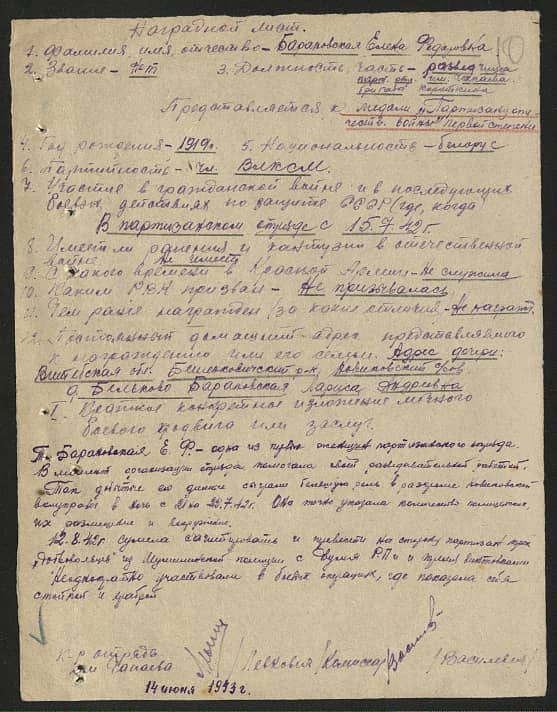 Наградной лист.
10
1. Фамилия, имя, отчество - Барановская Елена Федоровна
2. Звание - нет 3. Должность, часть - разведчица
парт. отр. им. Чапаева
Представляется к медали "Партизану оте-
честв. войны" первой степени.
4. Год рождения - 1919 г. 5. Национальность - белорус
6. Партийность - чл. ВЛКСМ.
7. Участие в гражданской войне и в последующих
боевых действиях по защите СССР (где, когда)
В партизанском отряде с 15.7.42 г.
8. Имеет ли ранения и контузии в отечественной
войне Не имеет
9. С какого времени в Красной Армии - Не служила
10. Каким РВК призван - Не призывалась
11. Чем ранее награжден (за какие отличия - Не награжд.
12. Постоянный домашний адрес представляемого
к награждению или его семьи. Адрес дочери:
Витебская обл. Бешенковичский р-н,
д. Бельково Барановская Лариса Андреевна
I. Краткое конкретное изложение личного
боевого подвига или заслуг.
Т. Барановская Е. Ф. - одна из первых женщин партизанского отряда.
В момент организации отряда помогала своей разведывательной работой.
Так добытые ею данные сыграли большую роль в разгроме
волуправы в ночь с 21 на 22.7.42 г. Она точно указала количество полицейских,
их размещение и вооружение.
12.8.42 г. сумела сагитировать и привести на сторону партизан трех
"добровольцев" из полиции с двумя РП и тремя винтовками
Неоднократно участвовала в боевых операциях, где показала себя
стойкой и храброй
К-р отряда
им. Чапаева /Левкович/ /Василевич/
14 июня 1943 г.